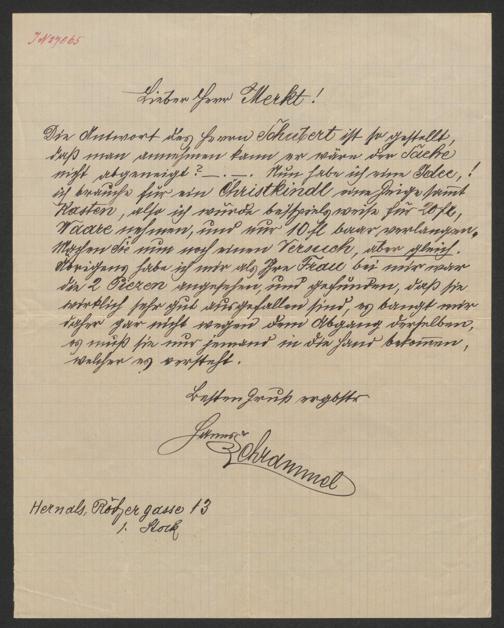 J.N. 27065
Lieber Herr Merkt!
Die Antwort des Herrn Schubert ist so gestellt,
daß man annehmen kann, er wäre der Sache
nicht abgeneigt? —.—. Nun habe ich eine Idee,!
ich brauche für ein Christkindl, eine Geige sammt
Kasten, also ich würde beispielsweise für 20 fl,
Waare nehmen, und nur 10 fl baar, verlangen,
Machen Sie nun noch einen Versuch, aber gleich.
Übrigens habe ich mir als Ihre Frau bei mir war
die 2 angesehen, und gefunden, daß sie
wirklich sehr gut ausgefallen sind, es bangt mir
daher gar nicht wegen dem Abgang derselben,
es muß sie nur jemand in die Hand bekommen,
welcher es versteht.
Besten Gruß ergbstr
Hanns Schrammel
Hernals, Rötzergasse 13
1. Stock